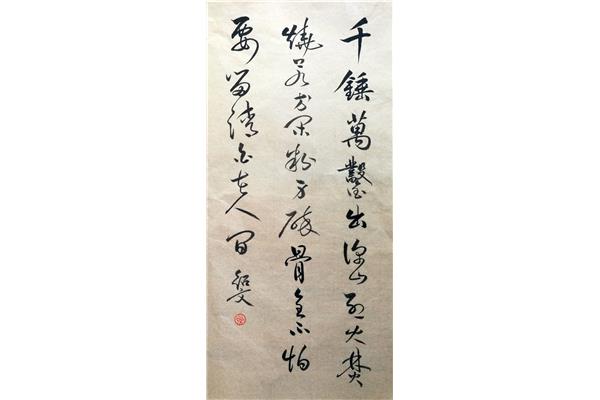 千錘萬鑿出深山烈火焚
燒若等閑粉身碎骨全不怕
要留清白在人間